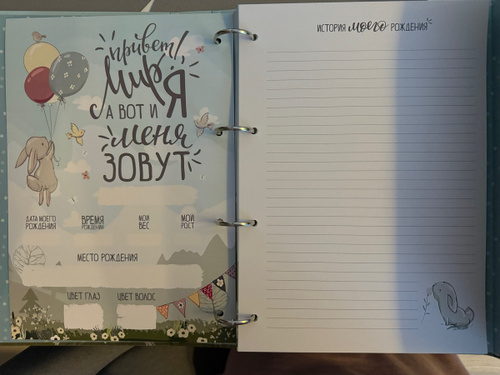 привет!
Мир
Я
А ВОТ И
меня
ЗОВУТ
ДАТА МОЕГО РОЖДЕНИЯ
ВРЕМЯ РОЖДЕНИЯ
МОЙ ВЕС
МОЙ РОСТ
МЕСТО РОЖДЕНИЯ
ЦВЕТ ГЛАЗ
ЦВЕТ ВОЛОС
ИСТОРИЯ моего РОЖДЕНИЯ